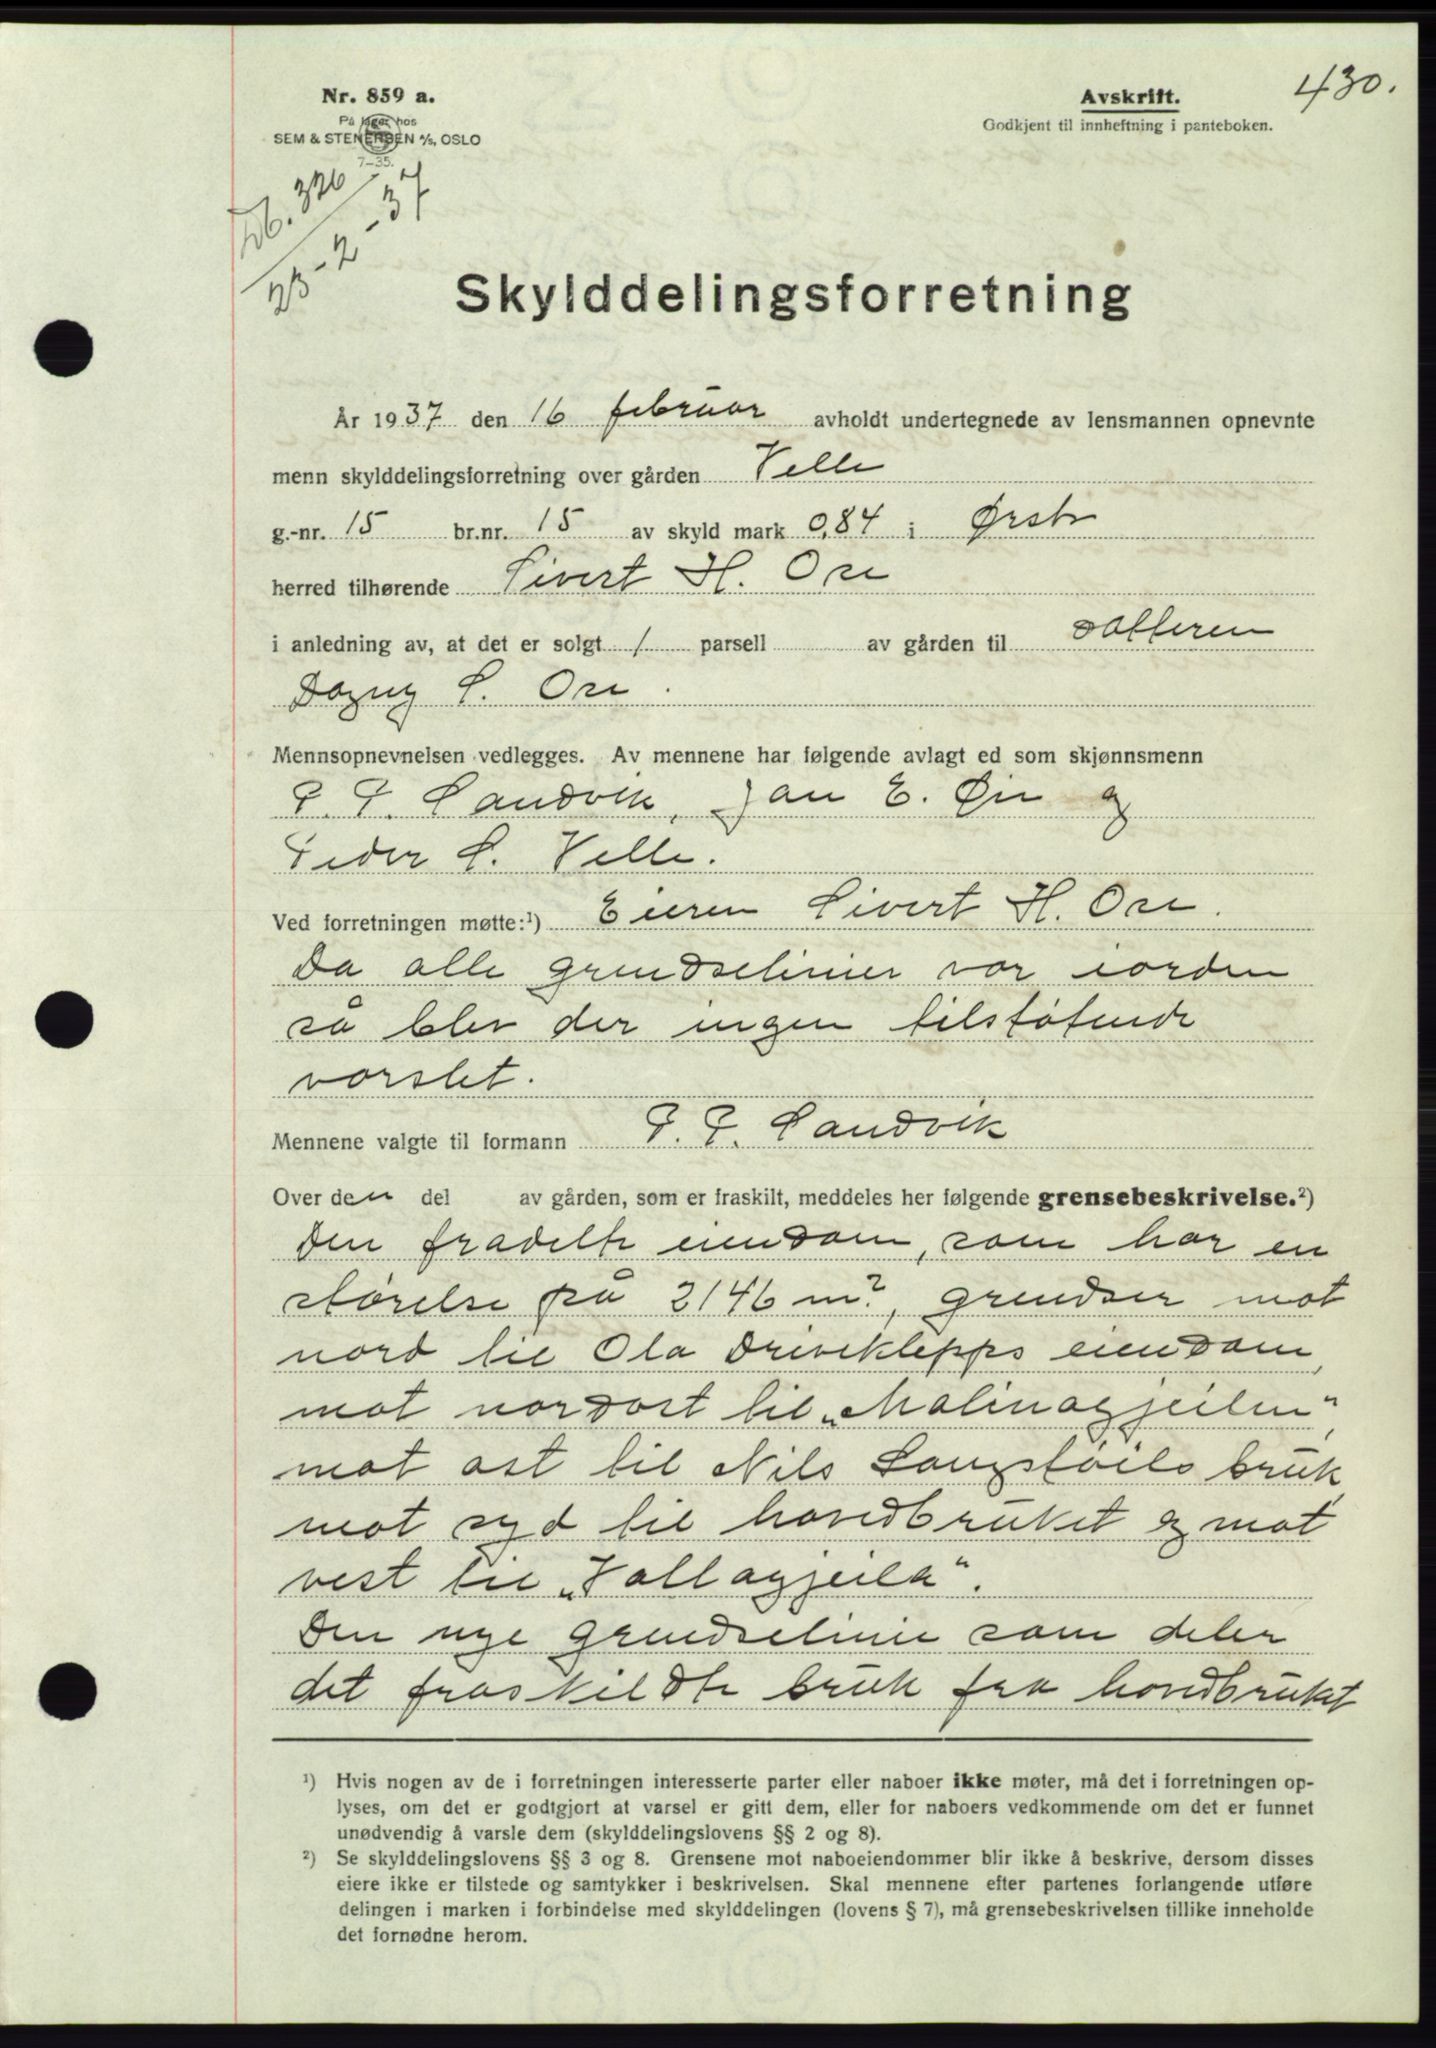 430.
Nr. 859 a.
På lager hos
SEM & STENERSEN A/S, OSLO
7-35.
Avskrift.
Godkjent til innheftning i panteboken.
Db. 326
23-2-37
Skylddelingsforretning
År 1937 den 16 februar avholdt undertegnede av lensmannen opnevnte
menn skylddelingsforretning over gården Velle
g.-nr. 15 br.nr. 15 av skyld mark 0,84 i Ørsta
herred tilhørende Sivert H. Ose
i anledning av, at det er solgt 1 parsell av gården til datteren
Dagny S. Ose.
Mennsopnevnelsen vedlegges. Av mennene har følgende avlagt ed som skjønnsmenn
P. P. Sandvik, Jon E. Øie og
Peder S. Velle.
Ved forretningen møtte:¹) Eieren Sivert H. Ose.
Da alle grendselinier var iorden
så blev der ingen tilstøtende
varslet.
Mennene valgte til formann P. P. Sandvik
Over den del av gården, som er fraskilt, meddeles her følgende grensebeskrivelse.²)
Den fradelte eiendom, som har en
størelse på 2146 m², grendser mot
nord til Ola Driveklepps eiendom,
mot nordost til „Malinagjeilen",
mot ost til Nils Langstøils bruk,
mot syd til hovedbruket og mot
vest til „Vallagjeila".
Den nye grendselinie som deler
det fraskildte bruk fra hovedbruket
¹) Hvis nogen av de i forretningen interesserte parter eller naboer ikke møter, må det i forretningen op-
lyses, om det er godtgjort at varsel er gitt dem, eller for naboers vedkommende om det er funnet
unødvendig å varsle dem (skylddelingslovens §§ 2 og 8).
²) Se skylddelingslovens §§ 3 og 8. Grensene mot naboeiendommer blir ikke å beskrive, dersom disses
eiere ikke er tilstede og samtykker i beskrivelsen. Skal mennene efter partenes forlangende utføre
delingen i marken i forbindelse med skylddelingen (lovens § 7), må grensebeskrivelsen tillike inneholde
det fornødne herom.